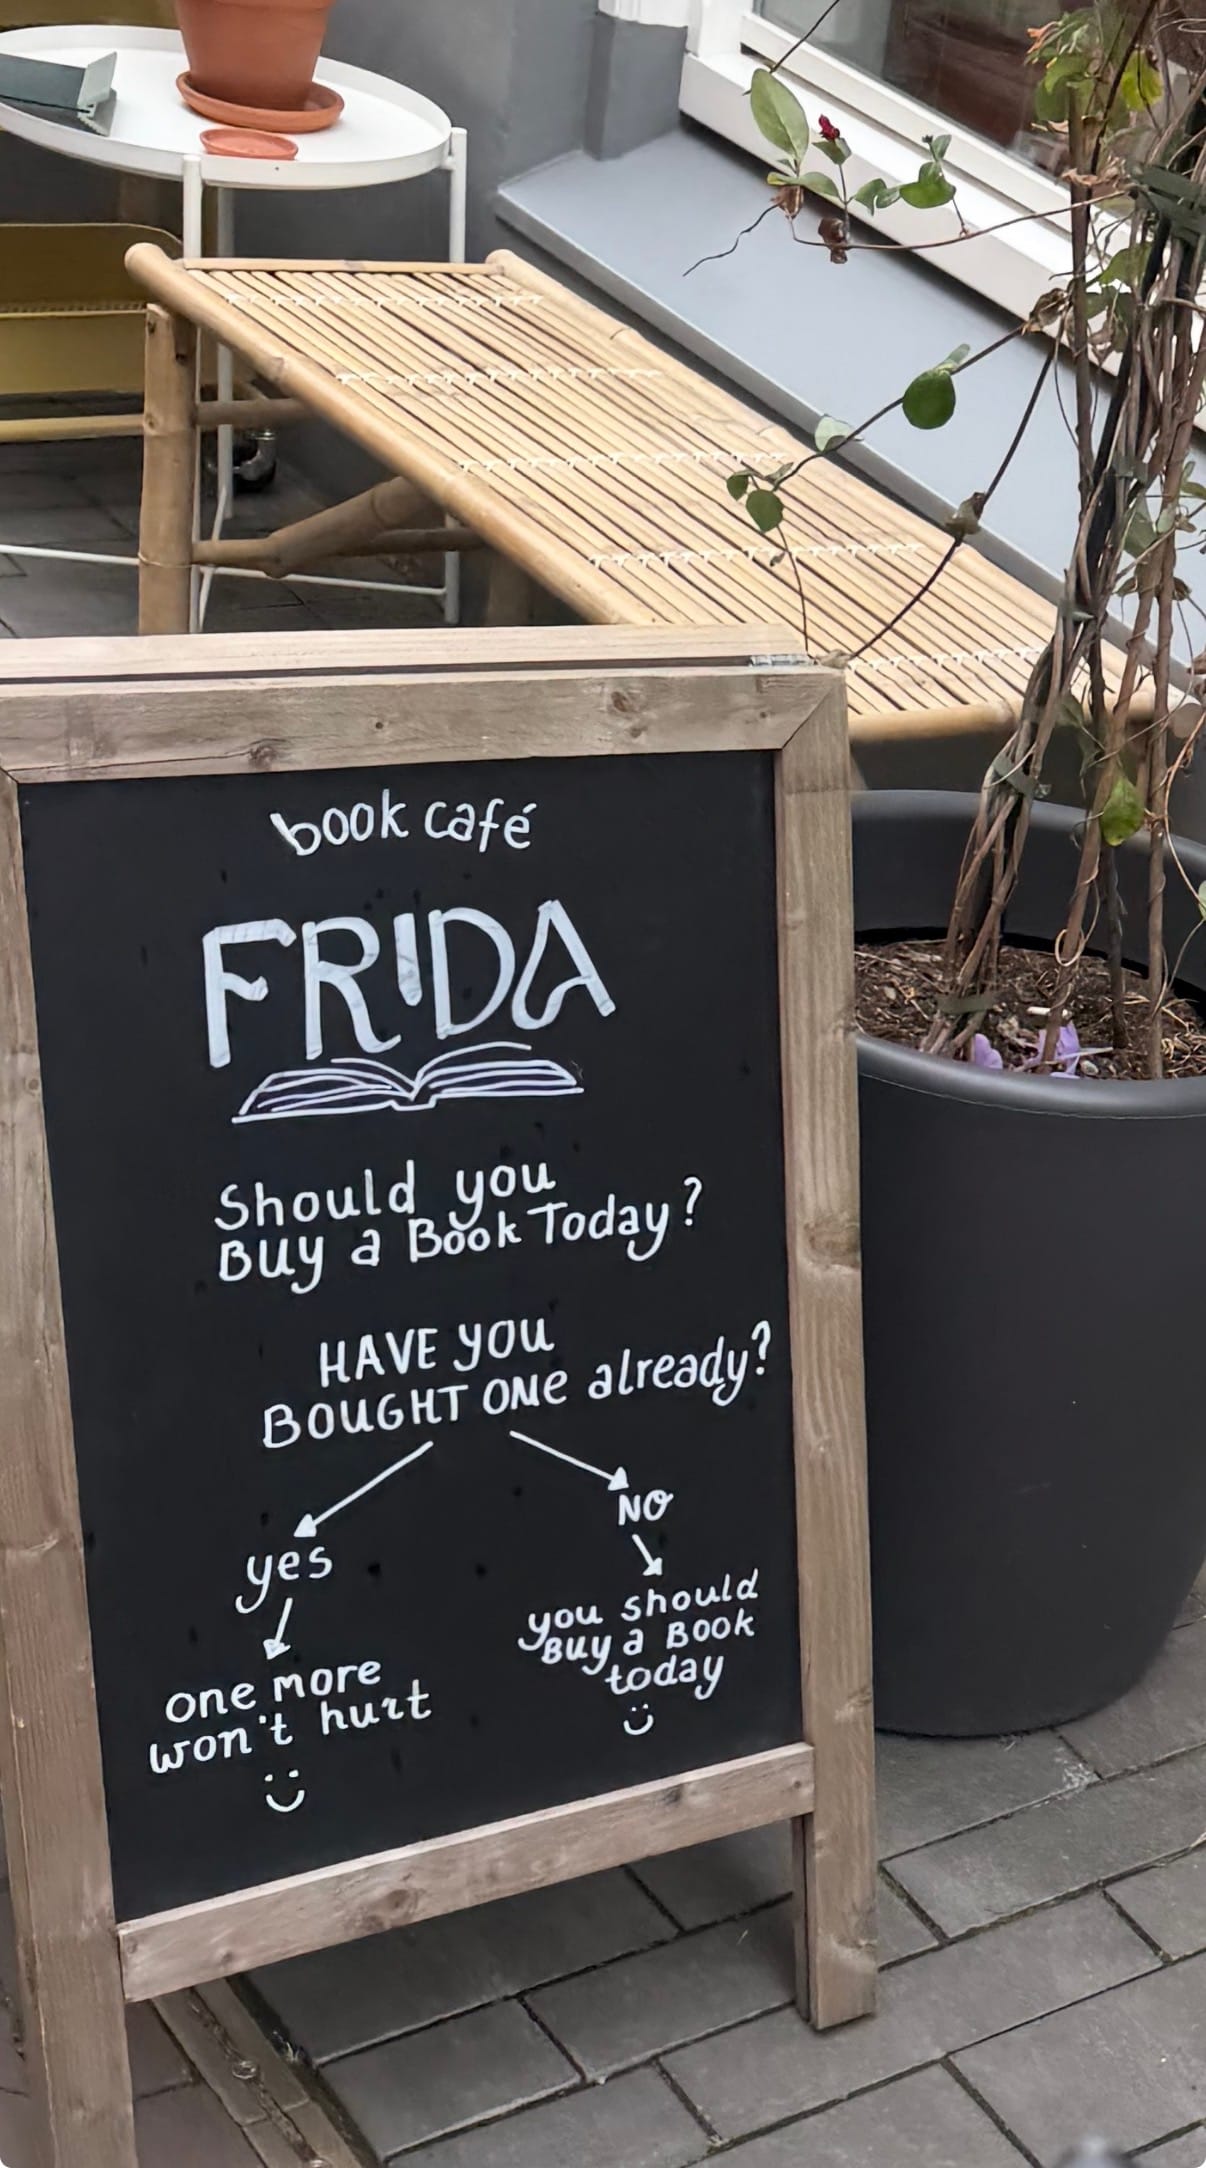 book café
FRIDA
Should you
Buy a Book Today?
HAVE you
BOUGHT ONe already?
yes
NO
one more
won't hurt
you should
Buy a Book
today